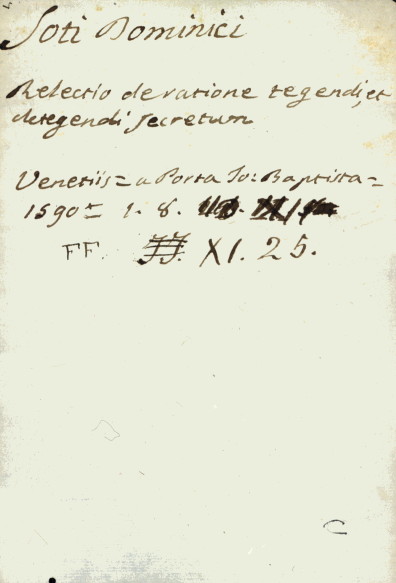 Soti Dominici
Relectio de ratione tegendi, et
detegendi secretum
Venetiis = a Porta Jo: Baptista =
1590 = 1. 8.
FF. XI. 25.
C